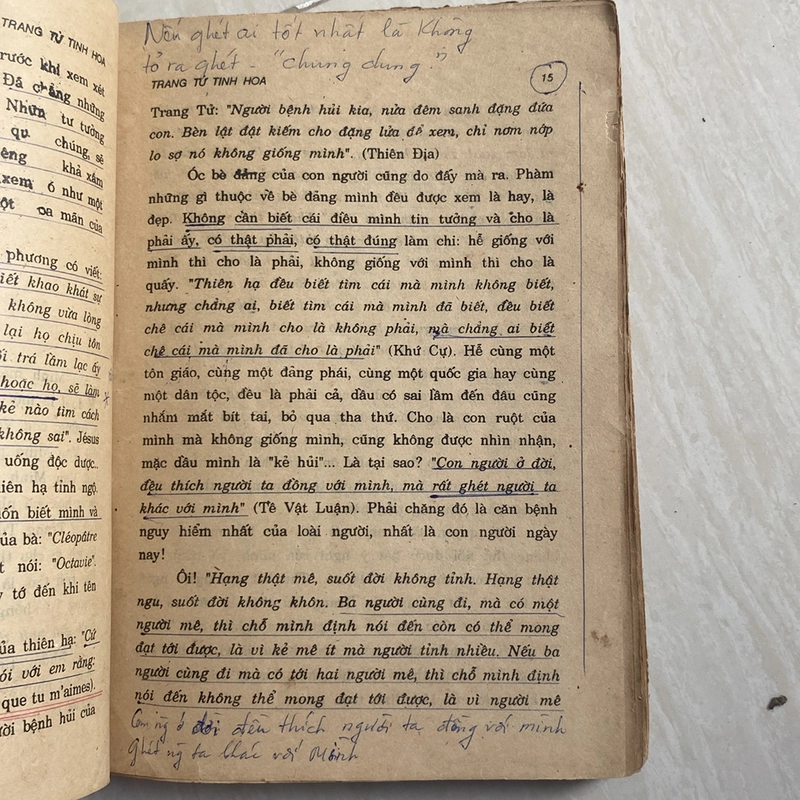 TRANG TỬ TINH HOA
rước khi xem xét
Đã chẳng những
Nhữn tư tưởng
qu chúng, sẽ
êng khả xắm
xem ó như một
ột oa mãn của
phương có viết:
iết khao khát sự
không vừa lòng
lại họ chịu tôn
ối trá lầm lạc ấy
hoặc họ, sẽ làm
kẻ nào tìm cách
không sai". Jésus
uống độc dược..
iên hạ tỉnh ngộ.
ốn biết mình và
của bà: "Cléopâtre
t nói: "Octavie".
y tớ đến khi tên
ủa thiên hạ: "Cứ
ói với em rằng:
que tu m'aimes).
ời bệnh hủi của
Nếu ghét ai tốt nhất là không
tỏ ra ghét - "chung dung"
TRANG TỬ TINH HOA 15
Trang Tử: "Người bệnh hủi kia, nửa đêm sanh đặng đứa
con. Bèn lật đật kiếm cho đặng lửa để xem, chỉ nơm nớp
lo sợ nó không giống mình". (Thiên Địa)
Óc bè đảng của con người cũng do đấy mà ra. Phàm
những gì thuộc về bè đảng mình đều được xem là hay, là
đẹp. Không cần biết cái điều mình tin tưởng và cho là
phải ấy, có thật phải, có thật đúng làm chi: hễ giống với
mình thì cho là phải, không giống với mình thì cho là
quấy. "Thiên hạ đều biết tìm cái mà mình không biết,
nhưng chẳng ai, biết tìm cái mà mình đã biết, đều biết
chê cái mà mình cho là không phải, mà chẳng ai biết
chê cái mà mình đã cho là phải" (Khứ Cự). Hễ cùng một
tôn giáo, cùng một đảng phái, cùng một quốc gia hay cùng
một dân tộc, đều là phải cả, dầu có sai lầm đến đâu cũng
nhắm mắt bít tai, bỏ qua tha thứ. Cho là con ruột của
mình mà không giống mình, cũng không được nhìn nhận,
mặc dầu mình là "kẻ hủi"... Là tại sao? "Con người ở đời,
đều thích người ta đồng với mình, mà rất ghét người ta
khác với mình" (Tề Vật Luận). Phải chăng đó là căn bệnh
nguy hiểm nhất của loài người, nhất là con người ngày
nay!
Ôi! "Hạng thật mê, suốt đời không tỉnh. Hạng thật
ngu, suốt đời không khôn. Ba người cùng đi, mà có một
người mê, thì chỗ mình định nói đến còn có thể mong
đạt tới được, là vì kẻ mê ít mà người tỉnh nhiều. Nếu ba
người cùng đi mà có tới hai người mê, thì chỗ mình định
nói đến không thể mong đạt tới được, là vì người mê
Con ng ở đời đều thích người ta đồng với mình
Ghét ng ta khác với Mình